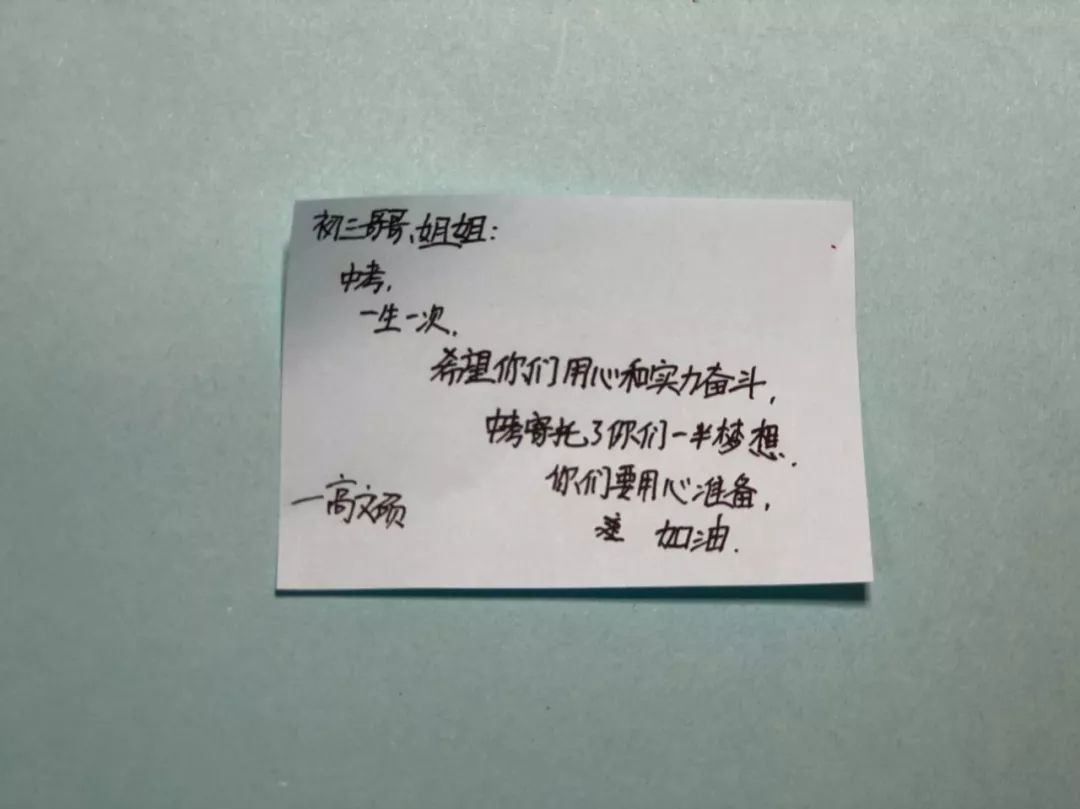 初三哥哥、姐姐：
中考，
一生一次，
希望你们用心和实力奋斗，
中考寄托了你们一半梦想，
你们要用心准备，
加油.
—高文硕